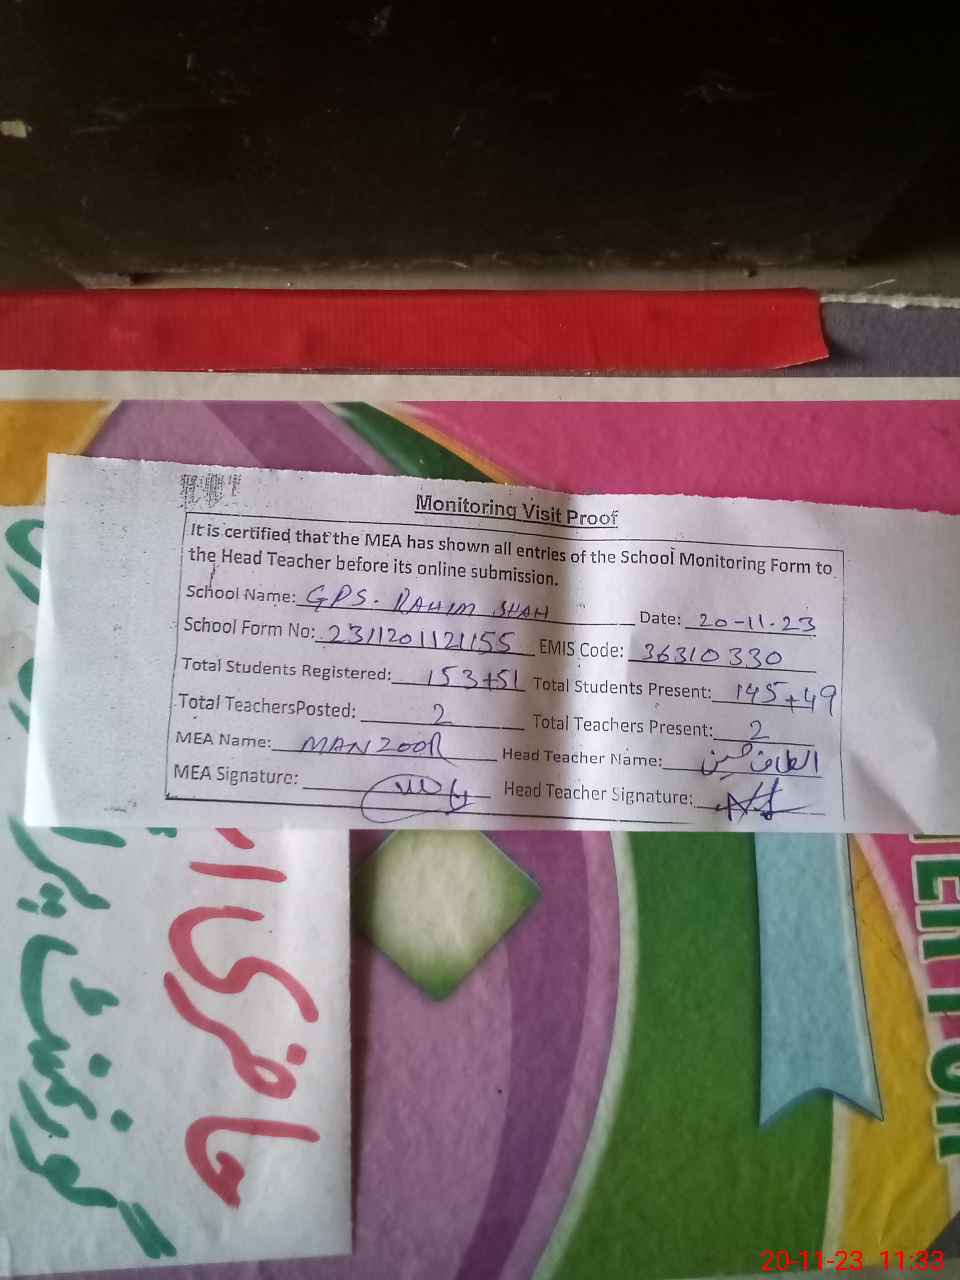 Monitoring Visit Proof
It is certified that the MEA has shown all entries of the School Monitoring Form to
the Head Teacher before its online submission.
School Name: GPS. RAHIM SHAH Date: 20-11-23
School Form No: 231120112155 EMIS Code: 36310330
Total Students Registered: 153+51 Total Students Present: 145+49
Total TeachersPosted: 2 Total Teachers Present: 2
MEA Name: MANZOOR Head Teacher Name: الطاف حسین
MEA Signature: Head Teacher Signature:
حاضری
گورنمنٹ
20-11-23 11:33